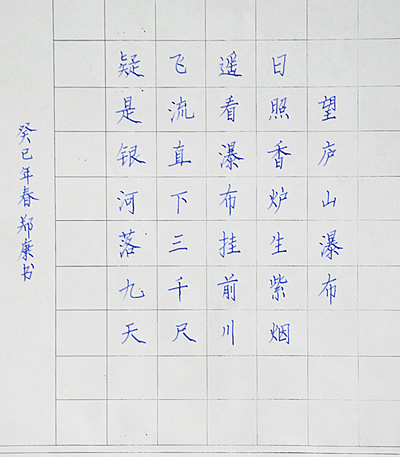 望庐山瀑布
日照香炉生紫烟
遥看瀑布挂前川
飞流直下三千尺
疑是银河落九天
癸巳年春郑康书